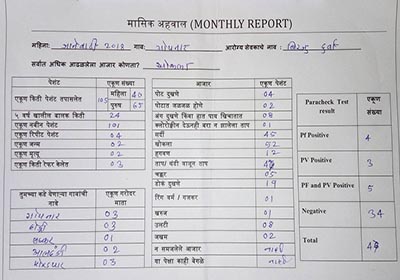 मासिक अहवाल (MONTHLY REPORT)
महिना: जानेवारी 2012 गाव: गोपनार आरोग्य सेवकाचे नाव:
सर्वात अधिक आढळलेला आजार कोणता? खोकला
पेशंट एकूण संख्या
एकूण किती पेशंट तपासलेत 105 महिला 40 पुरुष 65
५ वर्षा खालील बालक किती 24
एकूण नवीन पेशंट 101
एकूण रिपीट पेशंट 04
एकूण जन्म 02
एकूण मृत्यू 02
एकूण किती रेफर केलेत 03
तुमच्या कडे येणाऱ्या गावांची नावे एकूण गरोदर माता
गोपनार 03
03
01
02
03
आजार एकूण पेशंट
पोट दुखणे 04
पोटात जळजळ होणे 02
अंग दुखणे किंवा हात पाय खिचतात 08
क्लोरोक्वीन देऊनही बरा न झालेला ताप 01
सर्दी 45
खोकला 52
हगवण 12
ताप/ थंडी वाजून ताप
चक्कर 05
डोके दुखणे 19
रिंग वर्म / गजकर्ण 01
खरुज 01
उलटी 08
जखम 02
न समजलेले आजार नाही
या पेक्षा काही वेगळे नाही
Paracheck Test result एकूण संख्या
Pf Positive 4
PV Positive 3
PF and PV Positive 5
Negative 34
Total